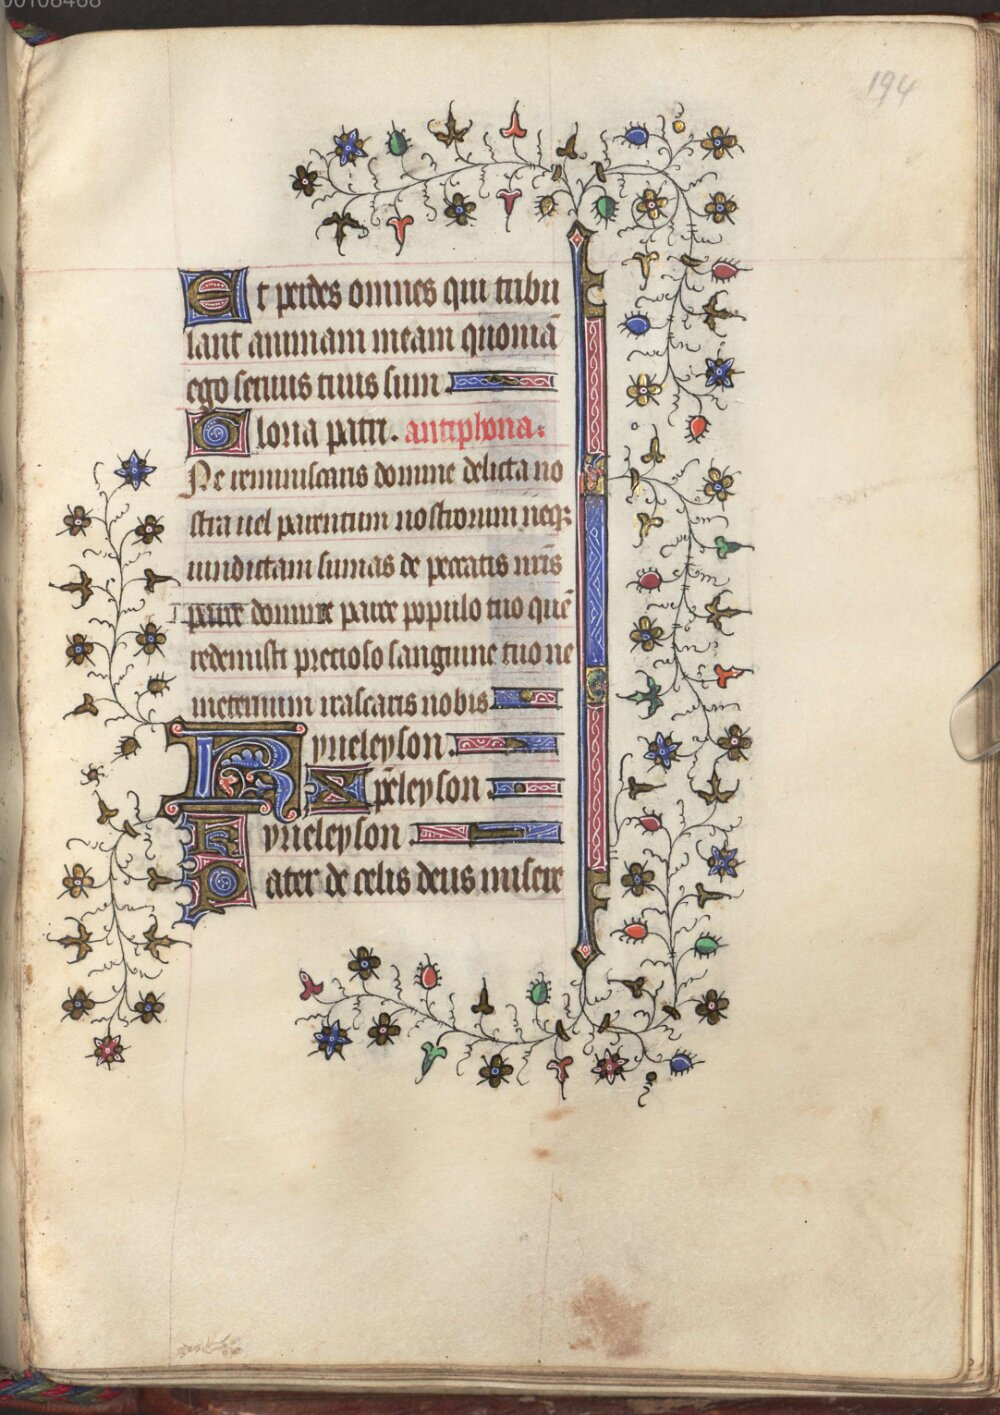 00108468
194
Et perdes omnes qui tribu
lant animam meam quoniā
ego seruus tuus sum.
Gloria patri. antiphona.
Ne reminiscaris domine delicta no
stra uel parentum nostrorum neqꝫ
uindictam sumas de peccatis nr̄is
parce domine parce populo tuo quē
redemisti precioso sanguine tuo ne
ineternum irascaris nobis
Kyrieleyson.
Xp̄eleyson.
Kyrieleyson.
Pater de celis deus misere